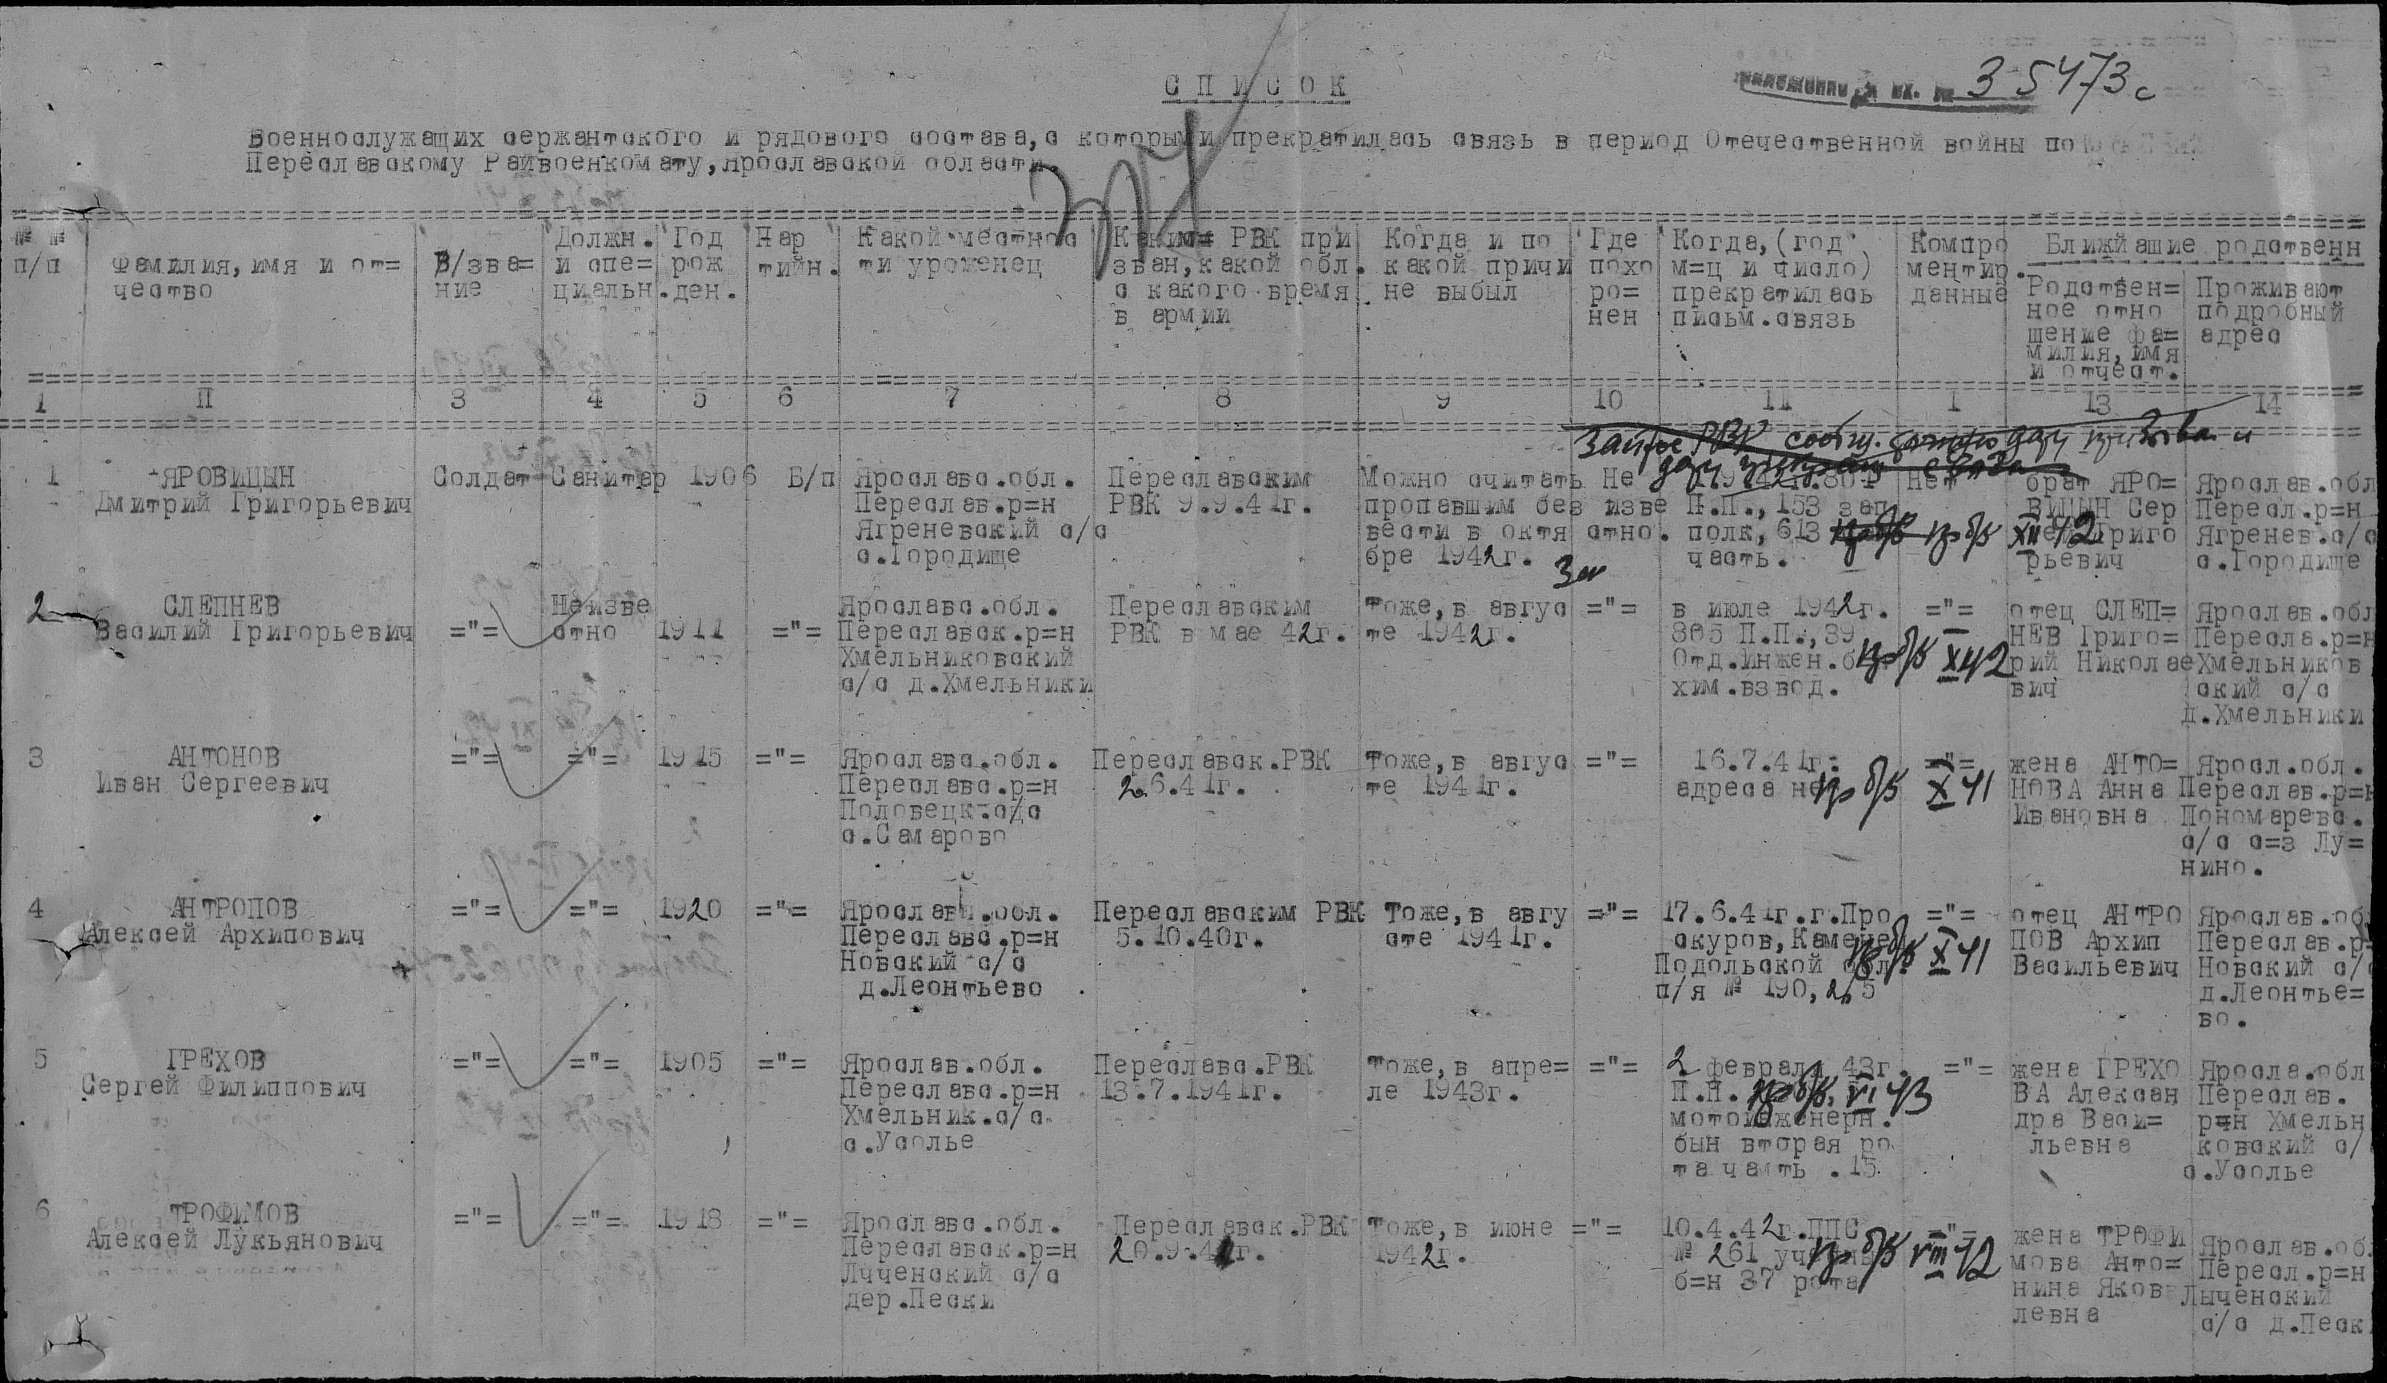 СПИСОК
35473с
Военнослужащих сержантского и рядового состава,с которыми прекратилась связь в период Отечественной войны по
Переславскому Райвоенкомату,Ярославской области.
№ №
п/п
Фамилия,имя и от=
чество
В/зва=
ние
Должн.
и спе=
циальн.
Год
рож
ден.
Пар
тийн.
Какой местнос
ти уроженец
Каким РВК при
зван,какой обл.
с какого время
в армии
Когда и по
какой причи
не выбыл
Где
похо
ро=
нен
Когда,(год
м=ц и число)
прекратилась
письм.связь
Компро
ментир.
данные
Ближйашие родственн
Родствен=
ное отно
шение фа=
милия,имя
и отчест.
Проживают
подробный
адрес
1 П 3 4 5 6 7 8 9 10 11 1 13 14
Запрос РВК сообщ.
1
ЯРОВИЦЫН
Дмитрий Григорьевич
Солдат
Санитар
1906
Б/п
Ярославс.обл.
Переслав.р=н
Ягреневский с/с
с.Городище
Переславским
РВК 9.9.41г.
Можно считать
пропавшим без
вести в октя
бре 1942г.
Не
изве
стно.
П.П.,153 зап
полк, 613
часть.
Нет
пр б/в XII 42
брат ЯРО=
ВИЦЫН Сер
Григо
рьевич
Ярослав.обл
Пересл.р=н
Ягренев.с/с
с.Городище
2
СЛЕПНЕВ
Василий Григорьевич
="=
Неизве
стно
1911
="=
Ярославс.обл.
Переславск.р=н
Хмельниковский
с/с д.Хмельники
Переславским
РВК в мае 42г.
Тоже,в авгус
те 1942г.
="=
в июле 1942г.
305 П.П.,39
Отд.инжен.б
хим.взвод.
="=
пр б/в X 42
отец СЛЕП=
НЕВ Григо=
рий Николае
вич
Ярослав.обл
Пересла.р=н
Хмельников
ский с/с
д.Хмельники
3
АНТОНОВ
Иван Сергеевич
="=
="=
1915
="=
Ярославс.обл.
Переславс.р=н
Половецк.с/с
с.Самарово
Переславск.РВК
2.6.41г.
Тоже,в авгус
те 1941г.
="=
16.7.41г.
адреса не
="=
пр б/в X 41
жена АНТО=
НОВА Анна
Ивановна
Яросл.обл.
Переслав.р=н
Пономаревс.
с/с с=з Лу=
нино.
4
АНТРОПОВ
Алексей Архипович
="=
="=
1920
="=
Ярославс.обл.
Переславс.р=н
Новский с/с
д.Леонтьево
Переславским РВК
5.10.40г.
Тоже,в авгу
сте 1941г.
="=
17.6.41г.г.Про
скуров,Камене
Подольской обл.
п/я № 190,2/5
="=
пр б/в X 41
отец АНТРО
ПОВ Архип
Васильевич
Ярослав.об
Переслав.р=
Новский с/с
д.Леонтье=
во.
5
ГРЕХОВ
Сергей Филиппович
="=
="=
1905
="=
Ярослав.обл.
Переславс.р=н
Хмельник.с/с.
с.Усолье
Переславс.РВК
13.7.1941г.
Тоже,в апре=
ле 1943г.
="=
2 февраля 43г.
П.П.
мотоинженерн.
бын вторая ро
та часть .15
="=
пр б/в. VI 43
жена ГРЕХО
ВА Алексан
дра Васи=
льевна
Яросла.обл
Переслав.
р=н Хмельн
ковский с/
с.Усолье
6
ТРОФИМОВ
Алексей Лукьянович
="=
="=
1918
="=
Ярославс.обл.
Переславск.р=н
Лчченский с/с
дер.Пески
Переславск.РВК
20.9.41г.
Тоже,в июне
1942г.
="=
10.4.42г.ППС
№ 261 уч
б=н 37 рота
="=
пр б/в VIII 42
жена ТРОФИ
мова Анто=
нина Яков
левна
Ярослав.об.
Пересл.р=н
Лыченский
с/с д.Песк